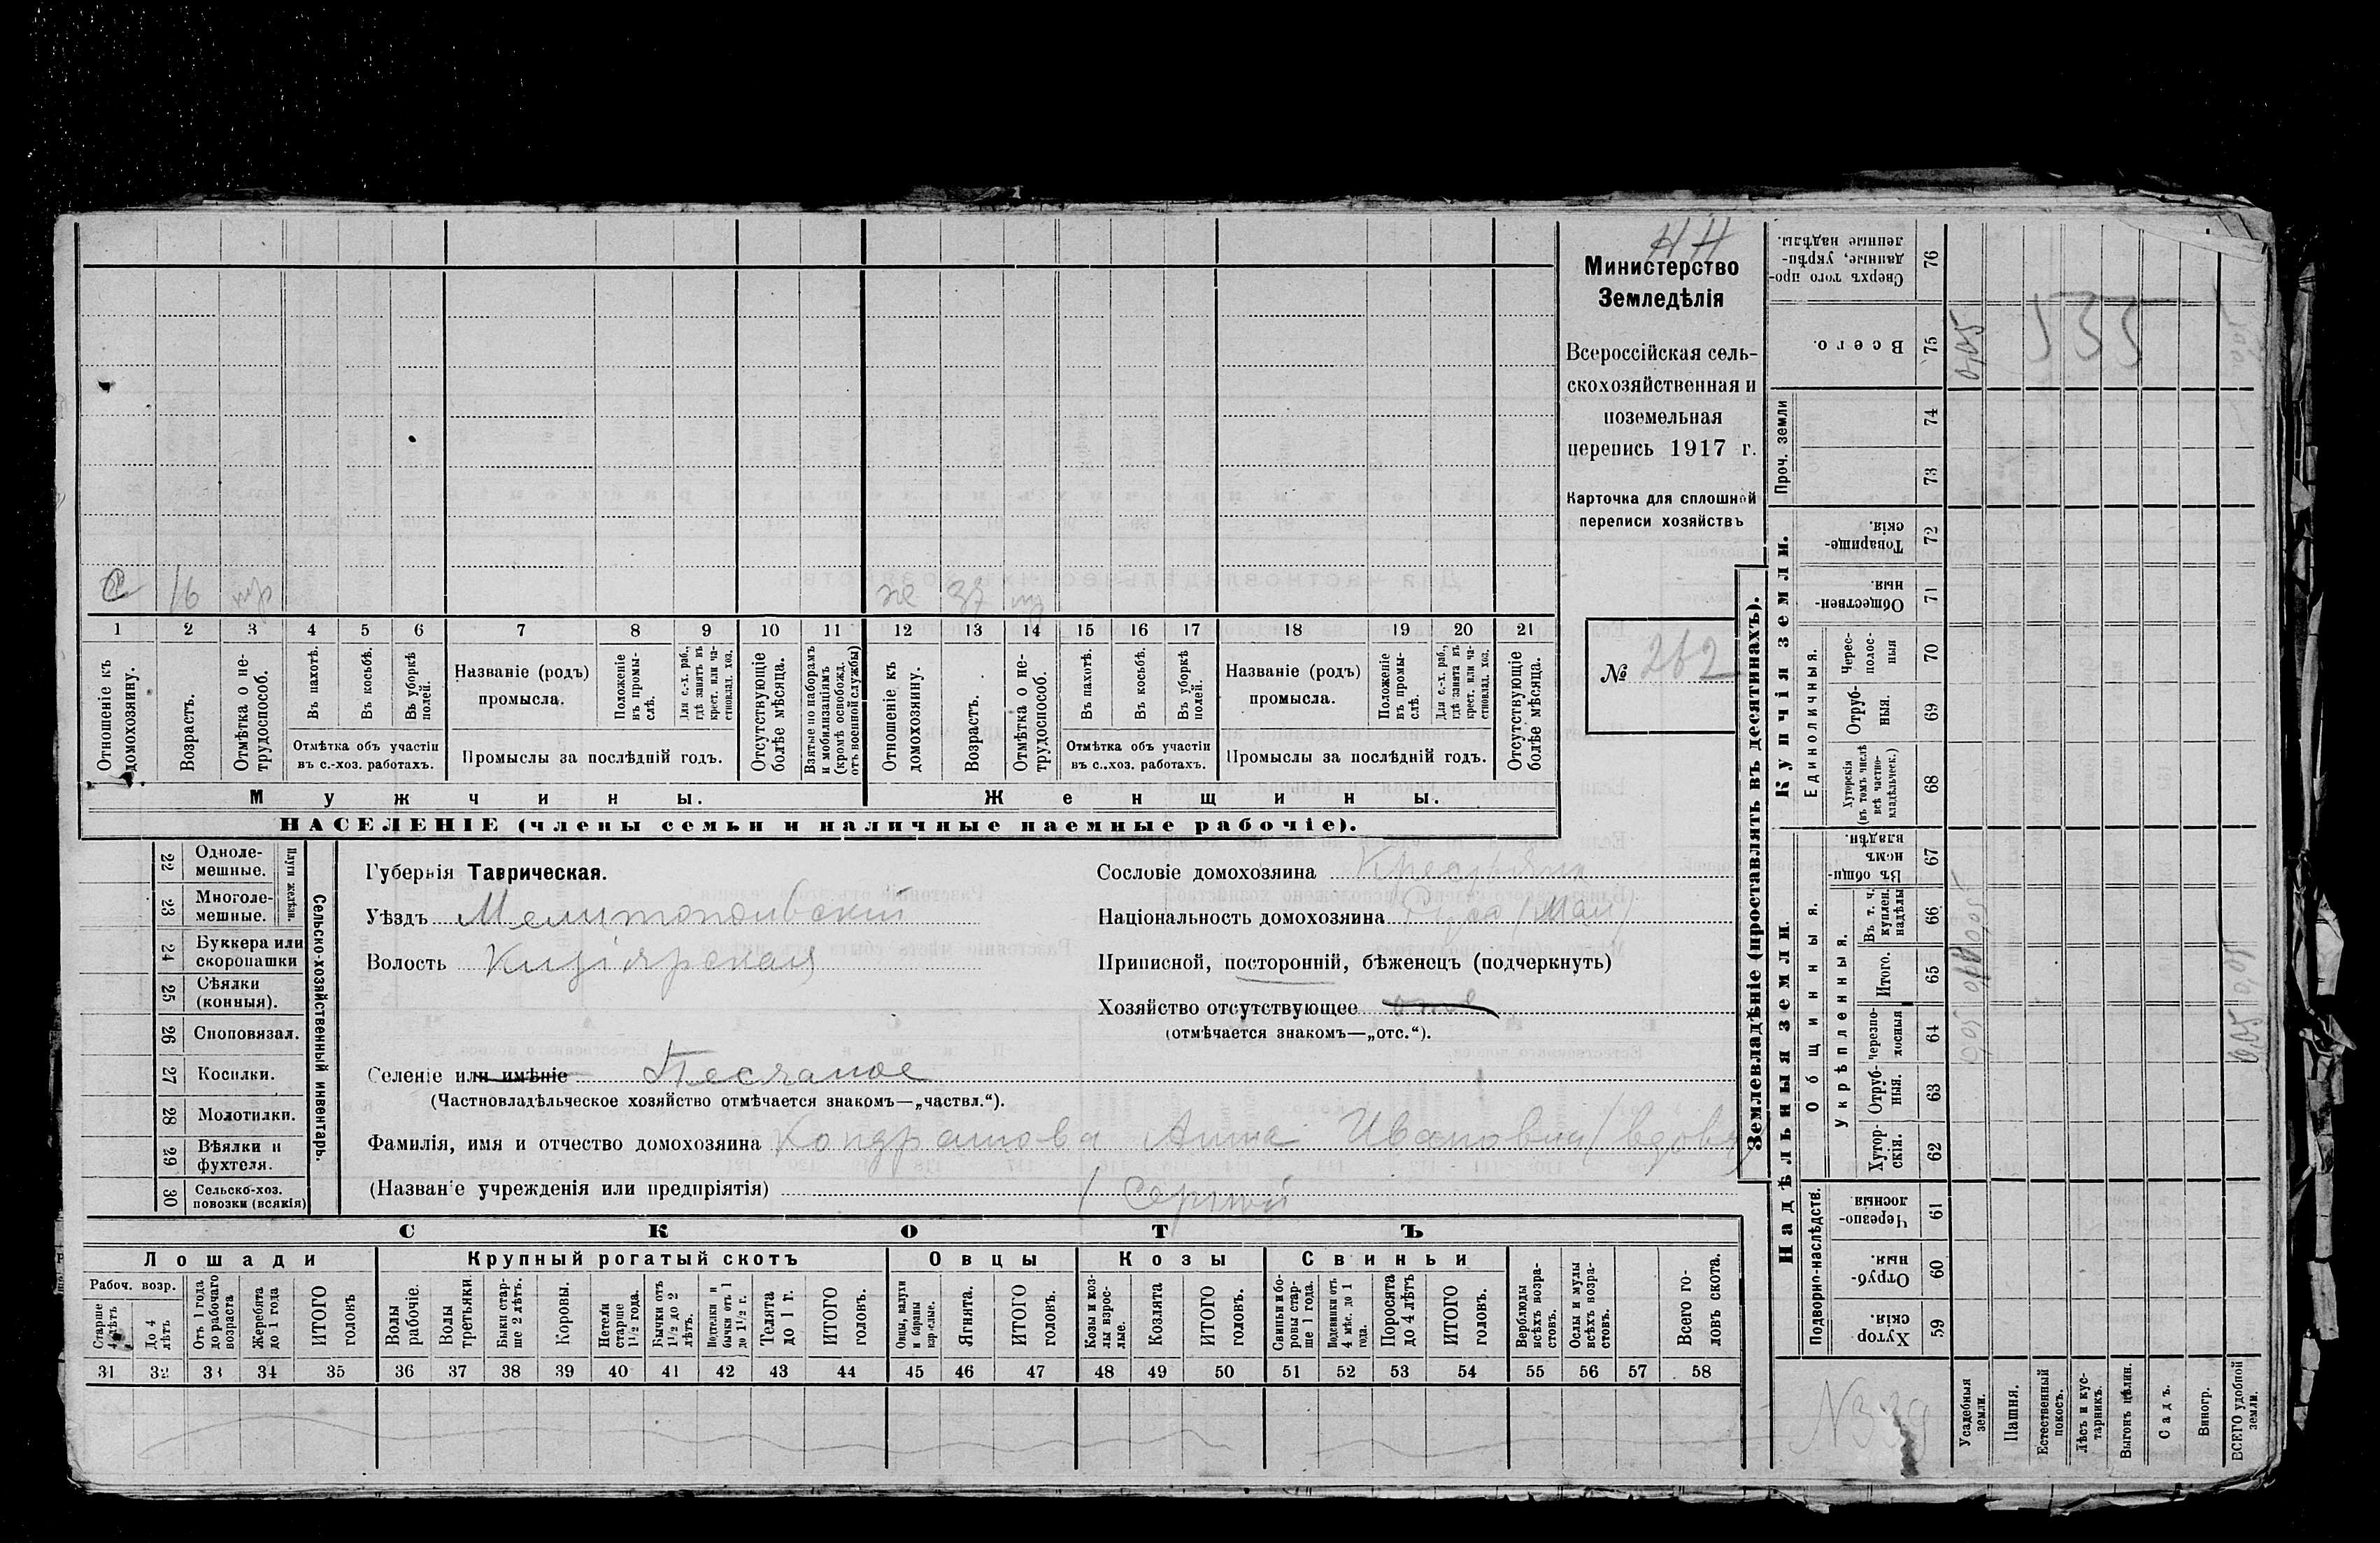 НН
Министерство
Земледѣлія
Всероссійская сель-
скохозяйственная и
поземельная
перепись 1917 г.
Карточка для сплошной
переписи хозяйствъ
№ 262
С 16 ж 37
1 2 3 4 5 6 7 8 9 10 11 12 13 14 15 16 17 18 19 20 21
Отношеніе къ домохозяину.
Возрастъ.
Отмѣтка о не-трудоспособ.
Въ пахотѣ.
Въ косьбѣ.
Въ уборкѣ полей.
Отмѣтка объ участіи
въ с.-хоз. работахъ.
Названіе (родъ)
промысла.
Положеніе въ промы-слѣ.
Для с.-х. раб., гдѣ занятъ въ крест. или ча-стновлад. хоз.
Промыслы за послѣдній годъ.
Отсутствующіе болѣе мѣсяца.
Взятые по наборамъ и мобилизаціямъ (кромѣ освобожд. отъ военной службы)
Отношеніе къ домохозяину.
Возрастъ.
Отмѣтка о не-трудоспособ.
Въ пахотѣ.
Въ косьбѣ.
Въ уборкѣ полей.
Отмѣтка объ участіи
въ с..хоз. работахъ.
Названіе (родъ)
промысла.
Положеніе въ промы-слѣ.
Для с.-х. раб., гдѣ занята въ крест. или ча-стновлад. хоз.
Промыслы за послѣдній годъ.
Отсутствующіе болѣе мѣсяца.
Мужчины.
Женщины.
НАСЕЛЕНІЕ (члены семьи и наличные наемные рабочіе).
Сельско-хозяйственный инвентарь.
Плуги желѣзн.
22 Одноле-мешные.
23 Многоле-мешные.
24 Буккера или скоропашки
25 Сѣялки (конныя).
26 Сноповязал.
27 Косилки.
28 Молотилки.
29 Вѣялки и фухтеля.
30 Сельско-хоз. повозки (всякія)
Губернія Таврическая.
Уѣздъ Мелитопольскій
Волость Кизіярская
Сословіе домохозяина Крестьяне
Національность домохозяина
Приписной, посторонній, бѣженецъ (подчеркнуть)
Хозяйство отсутствующее отс
(отмѣчается знакомъ—„отс.“).
Селеніе или имѣніе Песчаное
(Частновладѣльческое хозяйство отмѣчается знакомъ—„частвл.“).
Фамилія, имя и отчество домохозяина Кондрашова Анна Ивановна (вдова)
(Названіе учрежденія или предпріятія) / Сергѣй
СКОТЪ
Лошади
Крупный рогатый скотъ
Овцы
Козы
Свиньи
Рабоч. возр.
Старше 4 лѣтъ
До 4 лѣтъ
Отъ 1 года до рабочаго возраста
Жеребята до 1 года
ИТОГО головъ
Волы рабочіе.
Волы третьяки.
Быки стар-ше 2 лѣтъ.
Коровы.
Нетели старше 1½ года.
Бычки отъ 1½ до 2 лѣтъ.
Подтелки и бычки отъ 1 до 1½ г.
Телята до 1 г.
ИТОГО головъ.
Овцы, валухи и бараны взрослые.
Ягнята.
ИТОГО головъ.
Козы и коз-лы взрос-лые.
Козлята
ИТОГО головъ.
Свиньи и бо-ровы стар-ше 1 года.
Подсвинки отъ 4 мѣс. до 1 года.
Поросята до 4 лѣтъ
ИТОГО головъ.
Верблюды всѣхъ возра-стовъ.
Ослы и мулы всѣхъ возра-стовъ.
Всего го-ловъ скота.
31 32 33 34 35 36 37 38 39 40 41 42 43 44 45 46 47 48 49 50 51 52 53 54 55 56 57 58
Землевладѣніе (проставлять въ десятинахъ).
Купчія земли.
Надѣльныя земли.
Проч. земли
Единоличныя.
Общинныя.
Укрѣпленныя.
Подворно-наслѣдств.
76 Сверхъ того про-данные, укрѣп-ленные надѣлы.
75 Всего.
74
73
72 Товарище-скія.
71 Обществен-ныя
70 Черес-полос-ныя
69 Отруб-ныя.
68 Хуторскія (въ томъ числѣ всѣ частно-владѣльческ.)
67 Въ общи-номъ владѣн.
66 Въ т. ч. куплен. надѣлы
65 Итого.
64 Черезпо-лосныя
63 Отруб-ныя.
62 Хутор-скія.
61 Черезпо-лосныя
60 Отруб-ныя
59 Хутор-скія.
Усадебныя земли.
Пашня.
Естественный покосъ.
Лѣсъ и кус-тарникъ.
Выгонъ цѣлин.
Садъ.
Виногр.
ВСЕГО удобной земли.
0,05
535
0,05
0,05
0,05